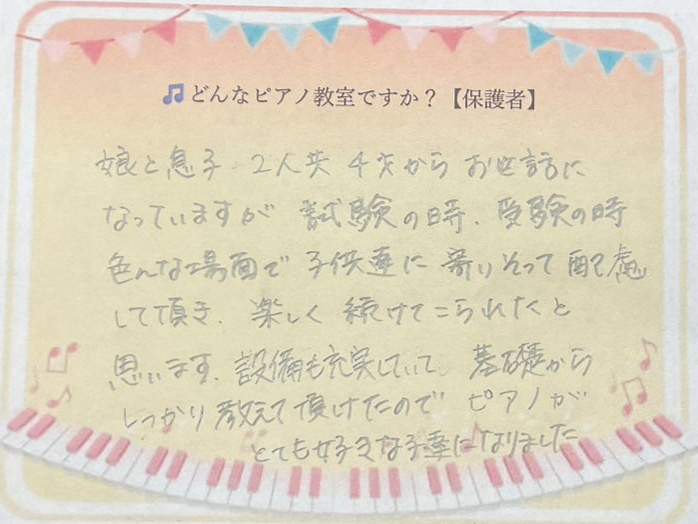 どんなピアノ教室ですか？【保護者】
娘と息子 2人共 4才から お世話に
なっていますが 試験の時、受験の時
色んな場面で 子供達に 寄りそって 配慮
して頂き、楽しく 続けてこられたと
思います。設備も充実していて 基礎から
しっかり教えて頂けたので ピアノが
とても好きな子達になりました